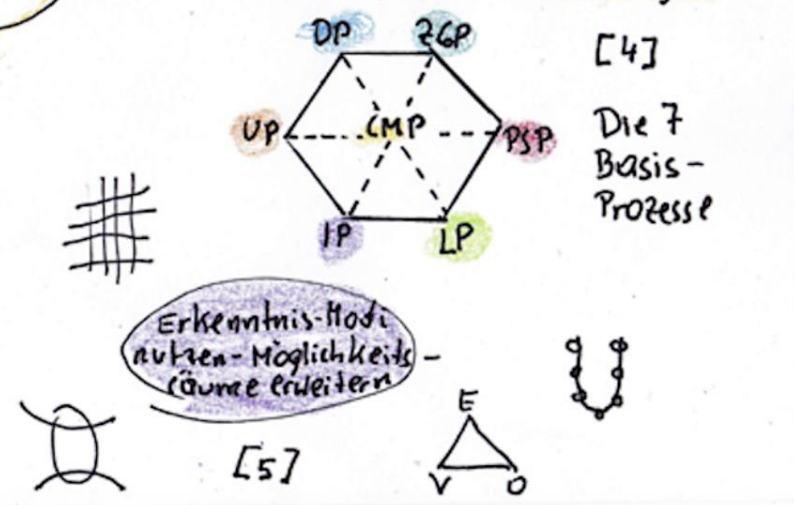 DP ZGP
[4]
UP CMP PSP
Die 7
Basis-
Prozesse
IP LP
Erkenntnis-Modi
nutzen-Möglichkeits-
räume erweitern
E
[5]
V O